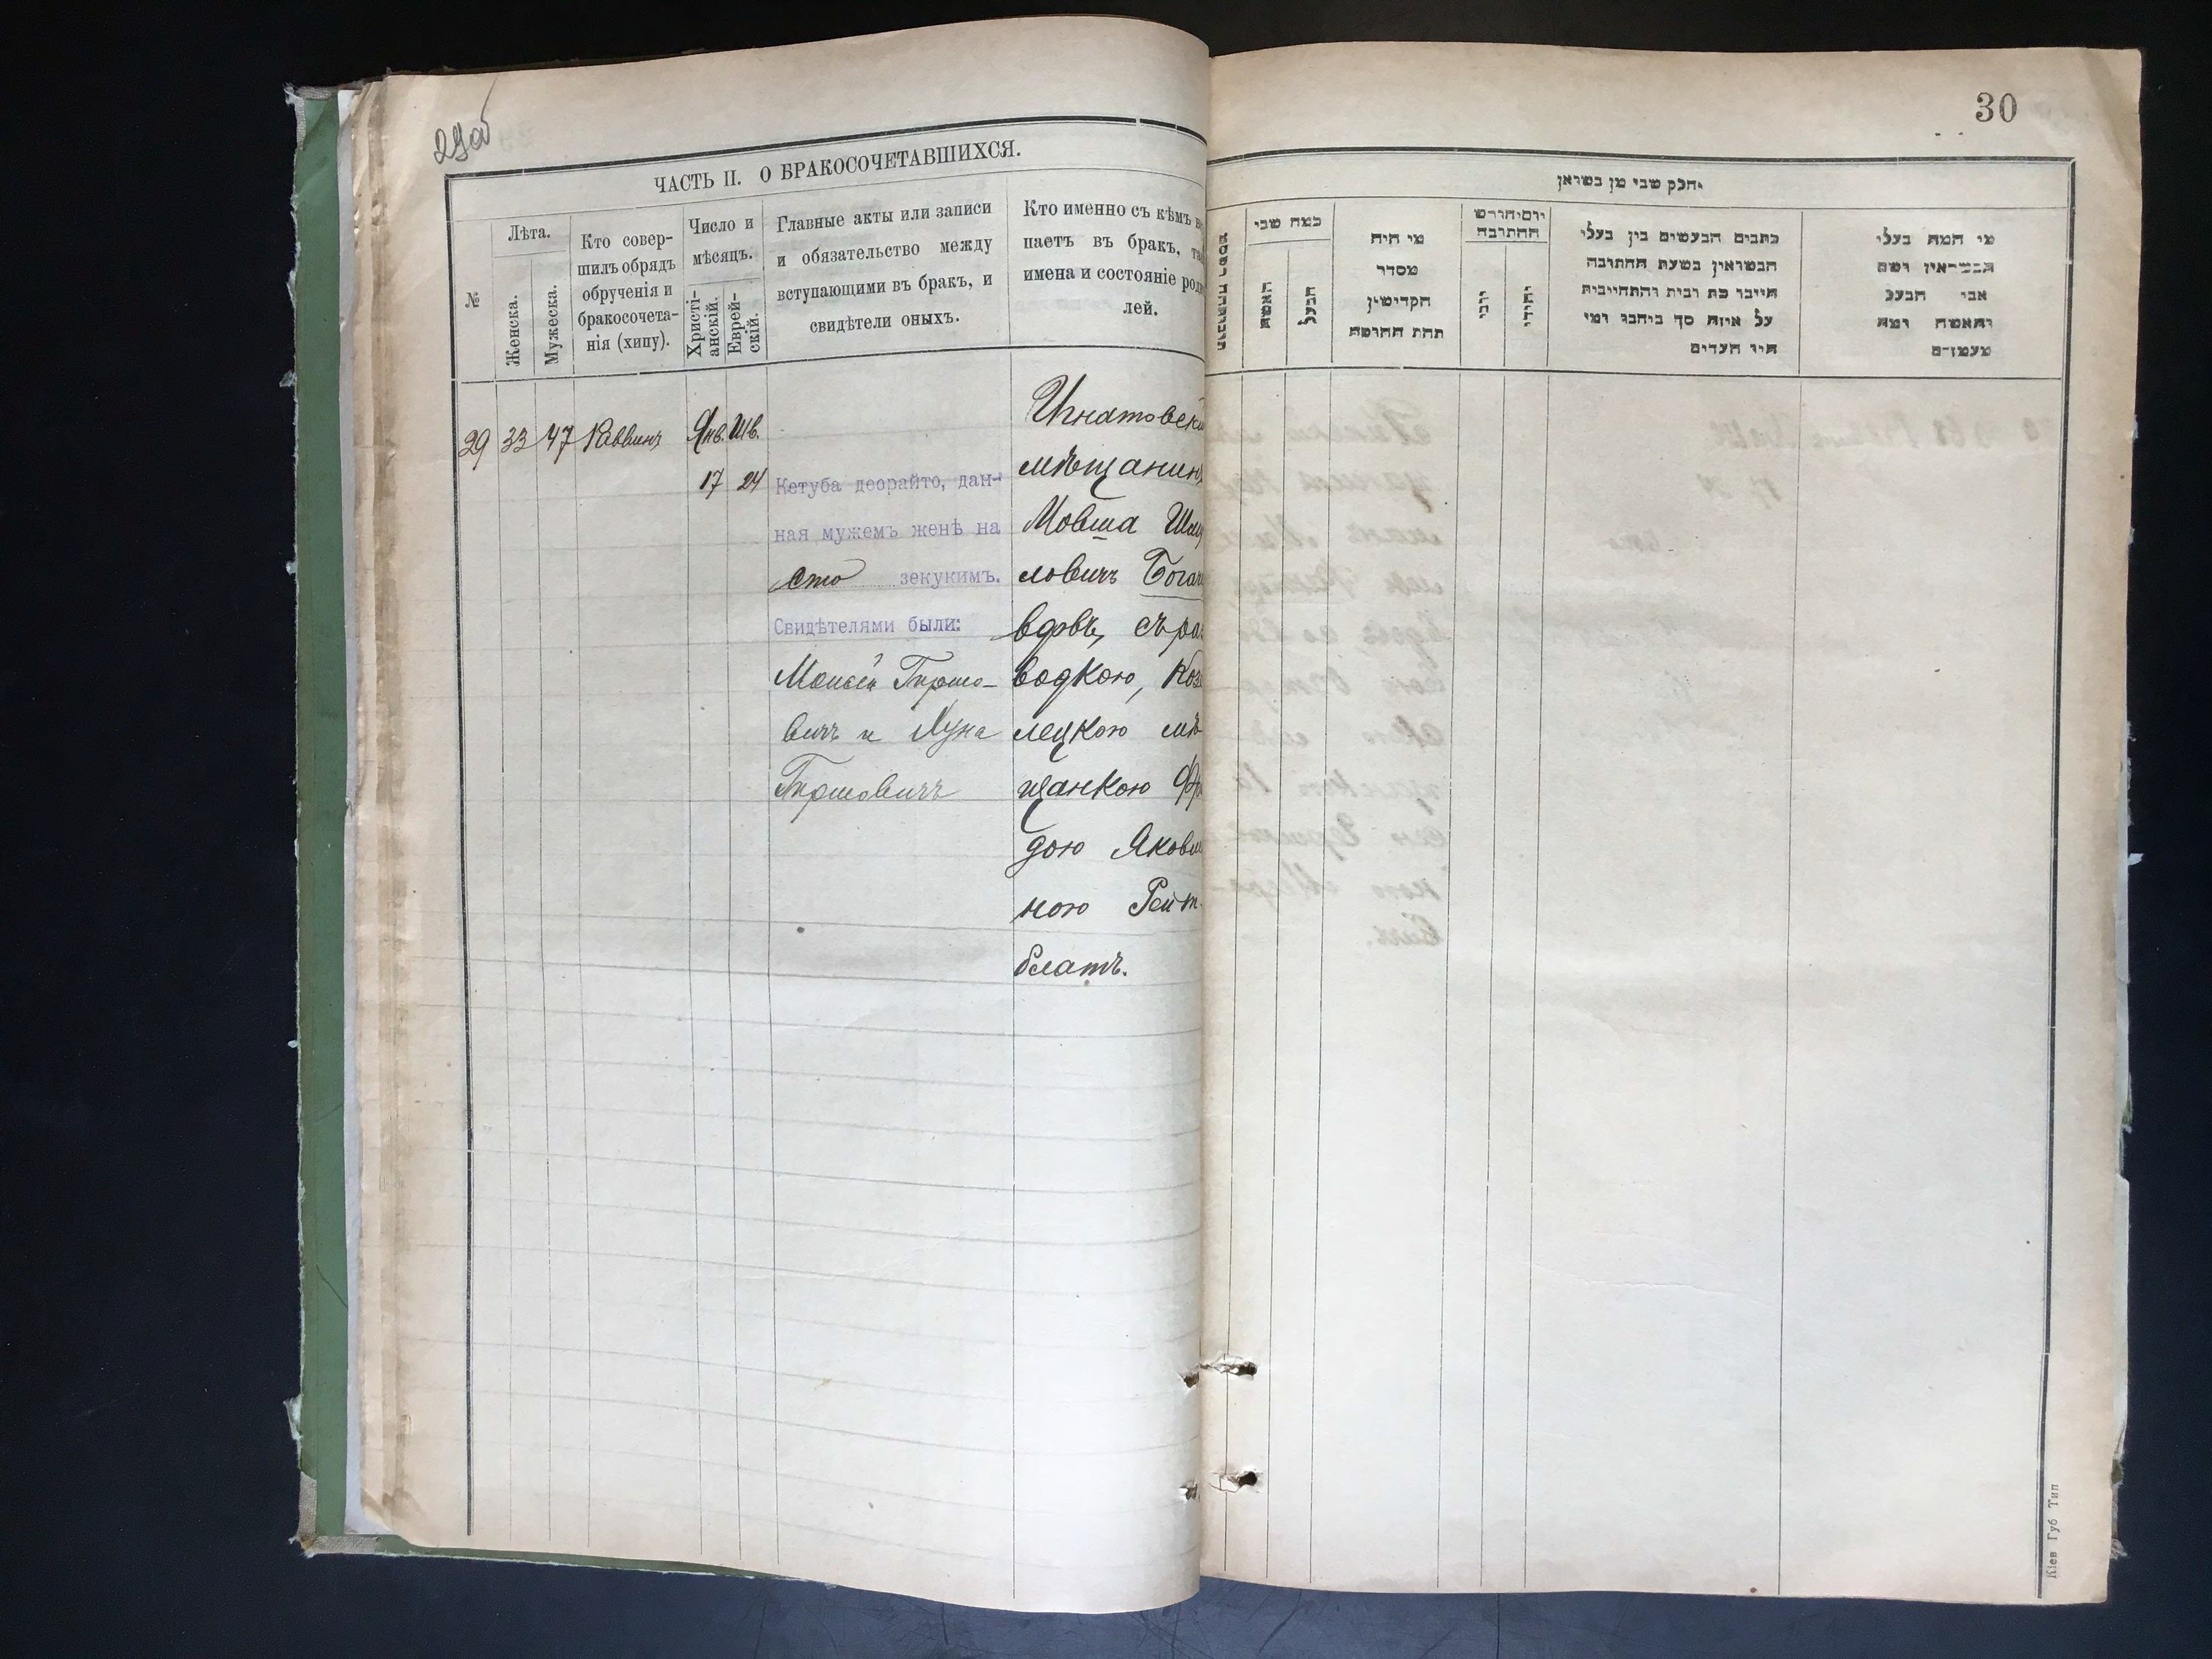 29об
ЧАСТЬ II. О БРАКОСОЧЕТАВШИХСЯ.
№
Лѣта.
Женска.
Мужеска.
Кто совер-
шилъ обрядъ
обрученія и
бракосочета-
нія (хипу).
Число и
мѣсяцъ.
Христі-
анскій.
Еврей-
скій.
Главные акты или записи
и обязательство между
вступающими въ бракъ, и
свидѣтели оныхъ.
Кто именно съ кѣмъ
паетъ въ бракъ,
имена и состояніе
лей.
29 33 47 Раввинъ Янв. Шв.
17 24
Кетуба деорайто, дан-
ная мужемъ женѣ на
сто зекукимъ.
Свидѣтелями были:
Моисей Гиршо-
вичъ и Лука
Гиршовичъ
Игнатовск
мѣщанинъ
Мовша
ловичъ
вдовъ, съ раз
водкою, Коз
лецкою мѣ
щанкою
дою Яковл
ною Рейт-
блатъ.
30
חלק שני מן נשואין
כמה שני
האשה
הבעל
מי היה
מסדר
הקדושין
תחת החופה
יום וחודש
החתונה
יהודי
כתבים הנעשים בין בעלי
הנשואין בשעת החתונה
על איזה סך ביחבו ומי
היו העדים
מי המה בעלי
הנשואין ושם
אבי הבעל
והאשה ומה
מעמדם
Кіев Губ Тип